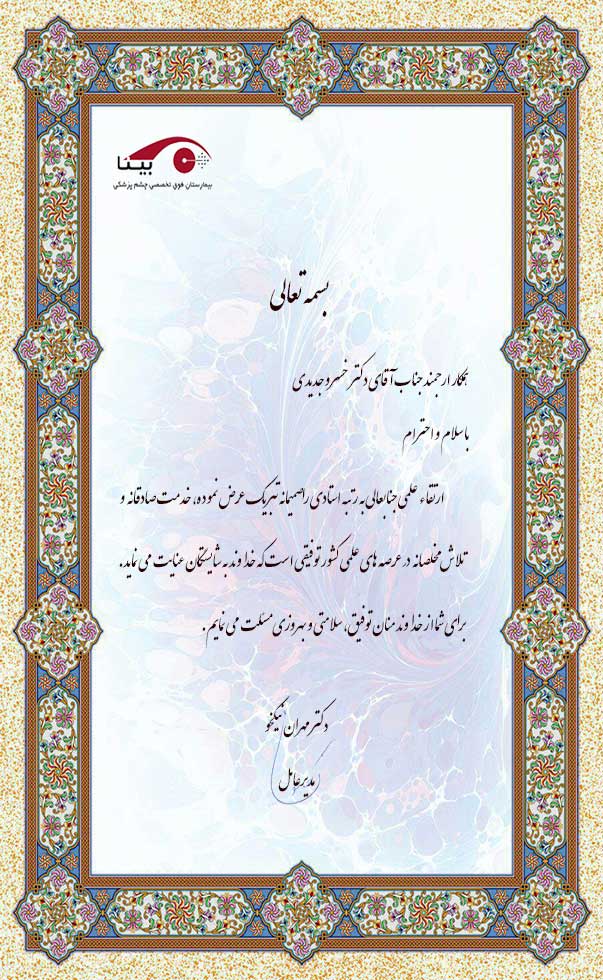 بینا
بیمارستان فوق تخصصی چشم پزشکی
بسمه تعالی
همکار ارجمند جناب آقای دکتر خسرو جدیدی
با سلام و احترام
ارتقاء علمی جنابعالی به رتبه استادی را صمیمانه تبریک عرض نموده، خدمت صادقانه و
تلاش مخلصانه در عرصه های علمی کشور توفیقی است که خداوند به شایستگان عنایت می نماید.
برای شما از خداوند منان توفیق، سلامتی و بهروزی مسئلت می نمایم.
دکتر مهران نیکخو
مدیرعامل